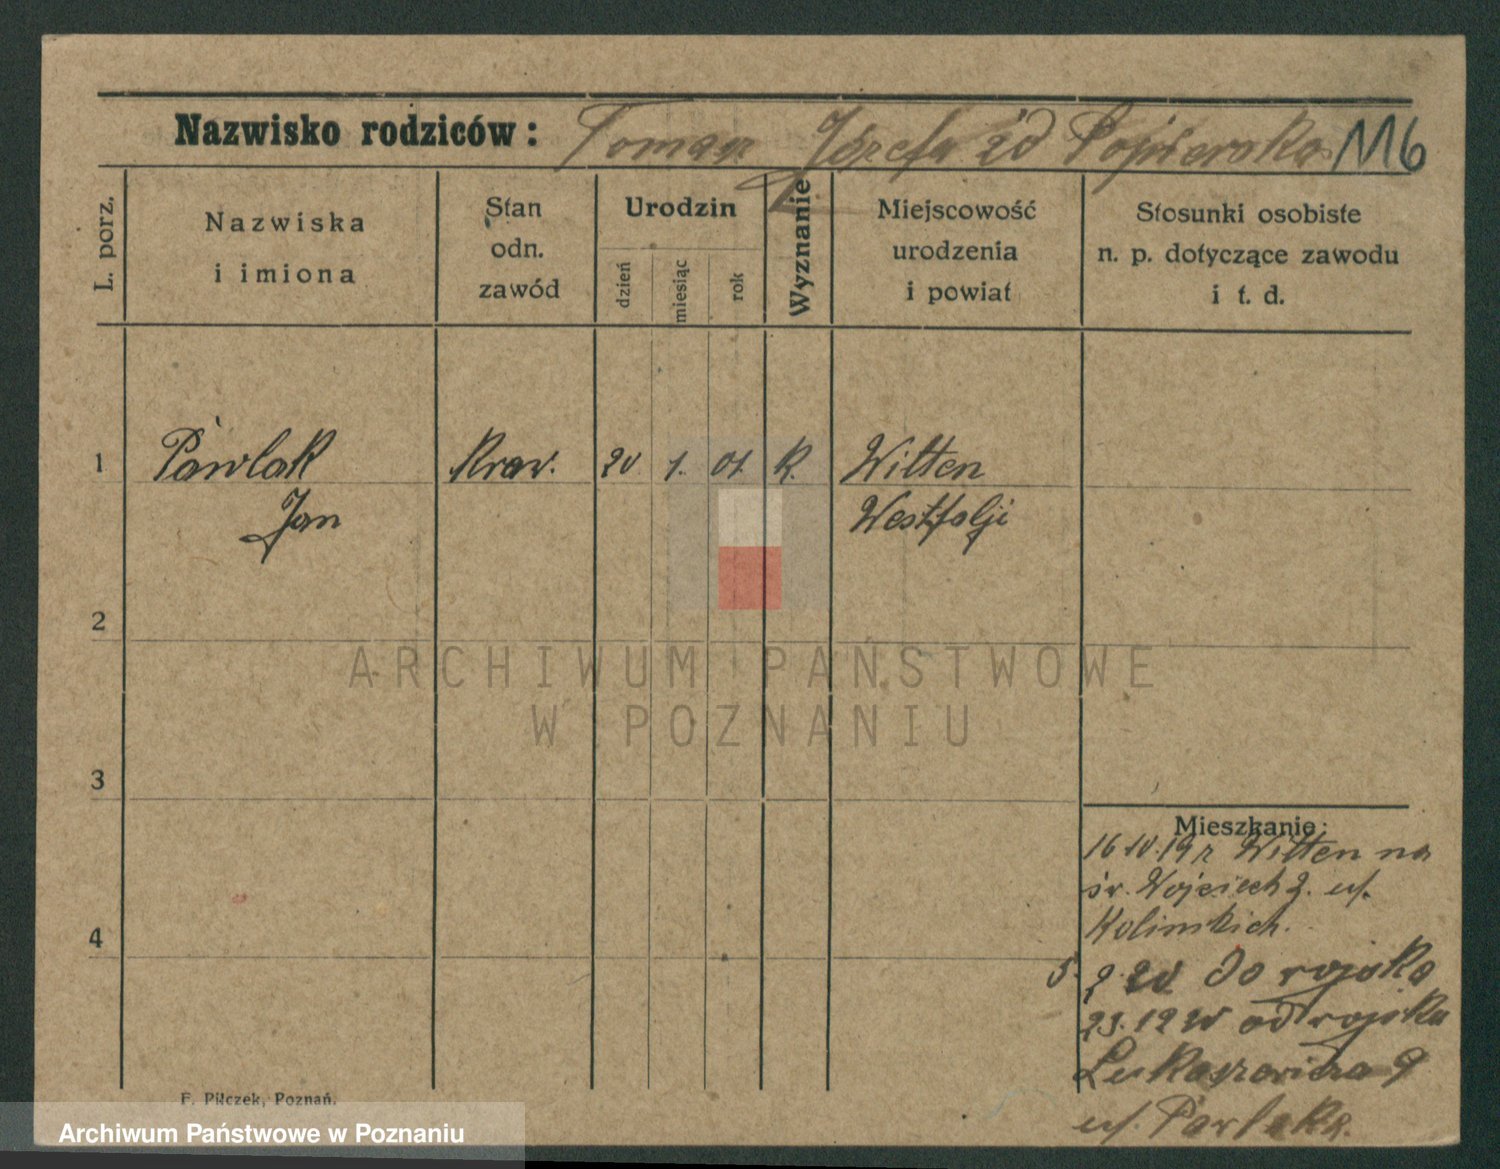 Nazwisko rodziców: Tomasz Józefa zd Pojścierska 116
L. porz.
Nazwiska
i imiona
Stan
odn.
zawód
Urodzin
dzień
miesiąc
rok
Wyznanie
Miejscowość
urodzenia
i powiat
Stosunki osobiste
n. p. dotyczące zawodu
i t. d.
1 Pawlak Kraw. 20 1. 01. K. Witten
Jan Westfalji
2
ARCHIWUM PAŃSTWOWE
W POZNANIU
3
Mieszkanie:
16 10.19 r Witten na
św. Wojciech 2. u/.
4
5. 2 20 Do wojska
23.12 20 od wojska
Łukaszewicza 9
u/. Pawlaka.
F. Pilczek, Poznań.
Archiwum Państwowe w Poznaniu